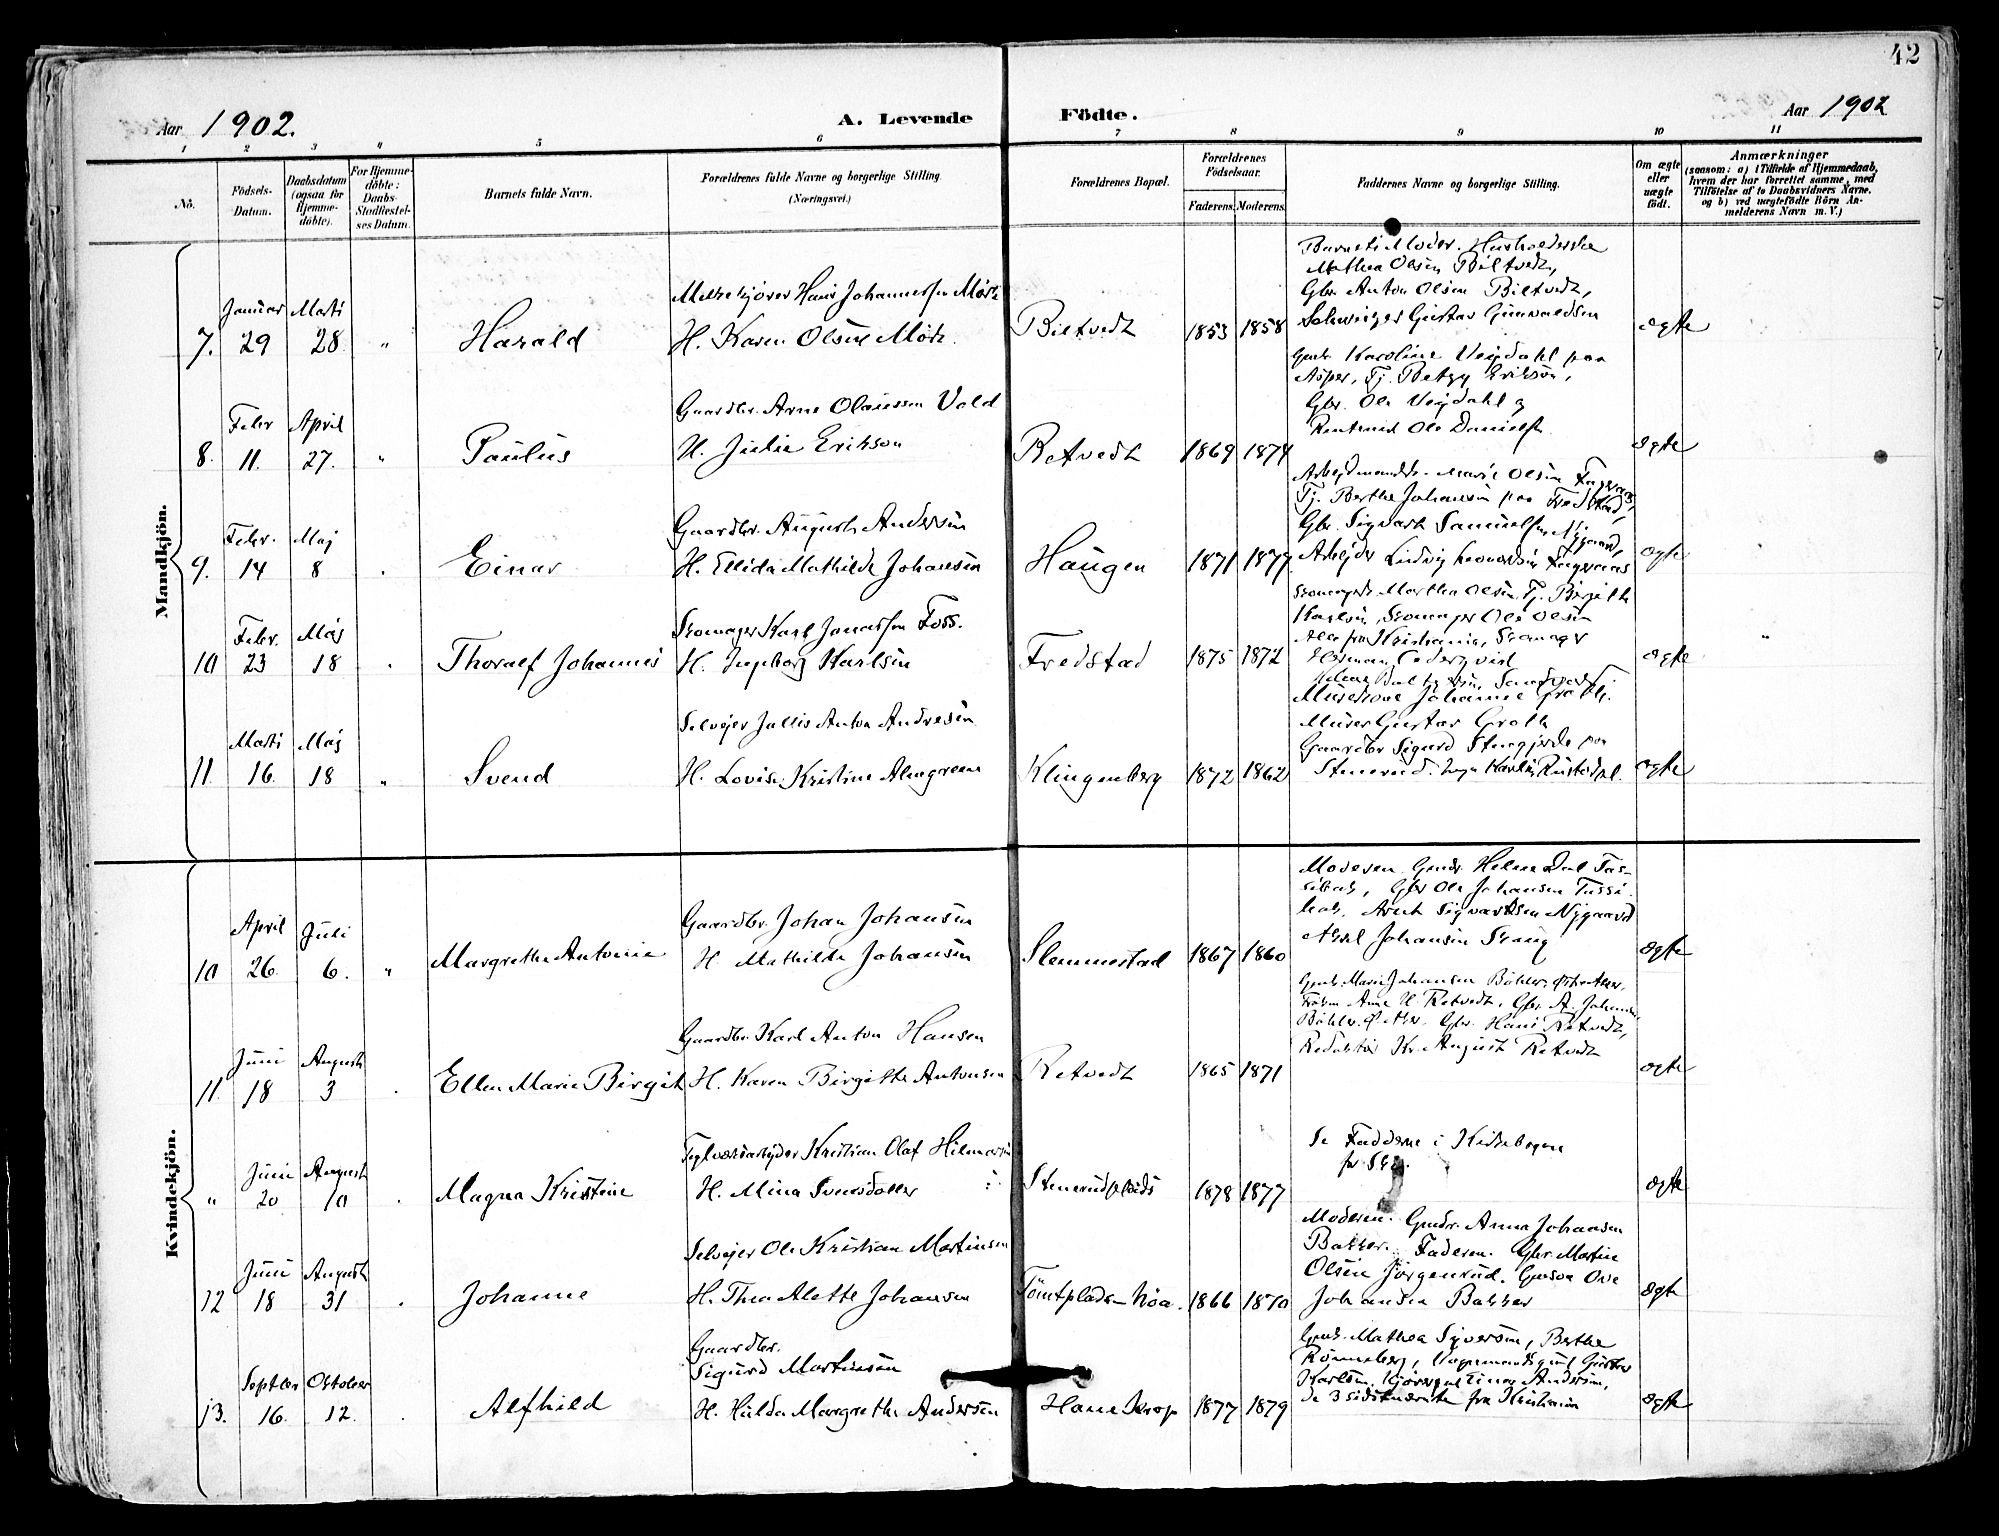 42
Aar 1902.
A. Levende Födte.
Aar 1902
1 2 3 4 5 6 7 8 9 10 11
No.
Födsels-
Datum.
Daabsdatum
(ogsaa for
Hjemme-
döbte).
For Hjemme-
döbte:
Daabs-
Stadfæstel-
ses Datum.
Barnets fulde Navn.
Forældrenes fulde Navne og borgerlige Stilling
(Næringsvei.)
Forældrenes Bopæl.
Forældrenes
Födselsaar.
Faderens. Moderens.
Faddernes Navne og borgerlige Stilling.
Om ægte
eller
uægte
födt.
Anmærkninger
(saasom: a) i Tilfælde af Hjemmedaab,
hvem der har forrettet samme, med
Tilföielse af to Daabsvidners Navne.
og b) ved uægtefödte Börn An-
melderens Navn m. V.)
Mandkjön.
Januar Marts
7. 29 28 " Harald
Hans Johannessen Mörk
H. Karen Olsen Mörk.
Biltvedt 1853 1858
Barnets Moder. Husholderske
Mathea Olsen Biltvedt,
Gbr. Anton Olsen Biltvedt,
Gustav Gunvaldsen
ægte
Febr April
8. 11. 27. " Paulus
Gaardbr. Arne Olaussen Vold
H. Julie Erikson
Retvedt 1869 1874
Karoline Vejdahl paa
Asper, Tj. Betzy Erikson,
Gbr. Ole Vejdahl og
Ole Danielsen
ægte
Febr. Maj
9. 14 8 Einar
Gaardbr. August Andersen
H. Ellida Mathilde Johansen
Haugen 1871 1877
Marie Olsen
Tj. Berthe Johansen paa Fredstad,
Gbr. Sigvart Samuelsen Nygaard,
Arbejder Ludvig
ægte
Febr. Maj
10 23 18 Thoralf Johannes
Skomager Karl Jonassen Foss.
H. Ingeborg Karlsen
Fredstad 1875 1872
Martha Olsen Tj. Birgith
Karlsen, Skomager Ole Olsen
Alle fra Kristiania, Skomager
Herman Cederqvist
ægte
Marts Maj
11. 16. 18 " Svend
Selvejer Julius Anton Andresen
H. Lovise Kristine Almgreen
Klingenberg 1872 1862
Murerkone Johanne Groth.
Murer Gustav Groth
Gaardbr Sigurd Stengjerde paa
Stenerud.
ægte
Kvindekjön.
April Juli
10 26. 6. " Margrethe Antonie
Gaardbr. Johan Johansen
H. Mathilde Johansen
Slemmestad 1867 1860
Moderen. Gmdr. Helene Dal Tas-
sebæk, Gbr Ole Johansen Tasse
bæk. Arnt Sigvartsen Nygaard
Axel Johansen Skaug
ægte
Juni August
11. 18 3 Ellen Marie Birgit
Gaardbr. Karl Anton Hansen
H. Karen Birgitte Antonsen
Retvedt 1865 1871
Marie Johansen Böhler
Anne H. Retvedt, Gbr. A. Johansen
Böhler. Gbr. Hans Retvedt,
Redaktör Kr. August Retvedt
ægte
Juni August
" 20 10 Magna Kristine
Teglværksarbejder Kristian Olaf Hilmarsen
H. Mina Svensdatter
Stenerudplads 1878 1877
Se Fadderne i Kirkebogen
for
ægte
Juni August
12 18 31 Johanne
Selvejer Ole Kristian Martinsen
H. Thea Alette Johansen
Tömtpladsen 1866 1870
Moderen. Gmdr. Anna Johansen
Bakker. Faderen. Gbr. Martin
Olsen Jörgenrud. Ove
Johansen Bakker
ægte
Septbr Oktober
13. 16. 12. Alfhild
Gaardbr.
Sigurd Martinsen
H. Hulda Margrethe Andersen
Hane Krop 1877 1879
Mathea Syversen, Berthe
Rönneberg, Gustav
Karlsen, Einar Andersen,
de 3 sidstnævnte fra Kristiania
ægte